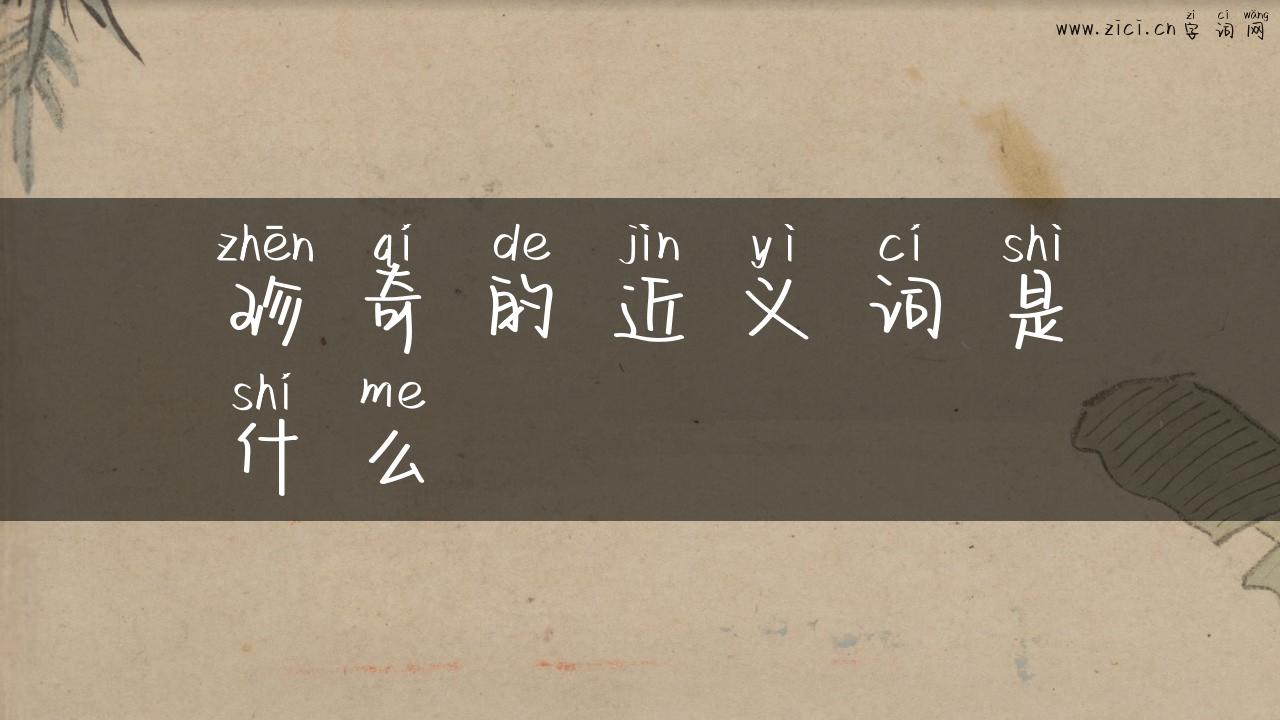 zì cí wǎng
www.zici.cn 字 词 网
zhēn qí de jìn yì cí shì
珍 奇 的 近 义 词 是
shí me
什 么